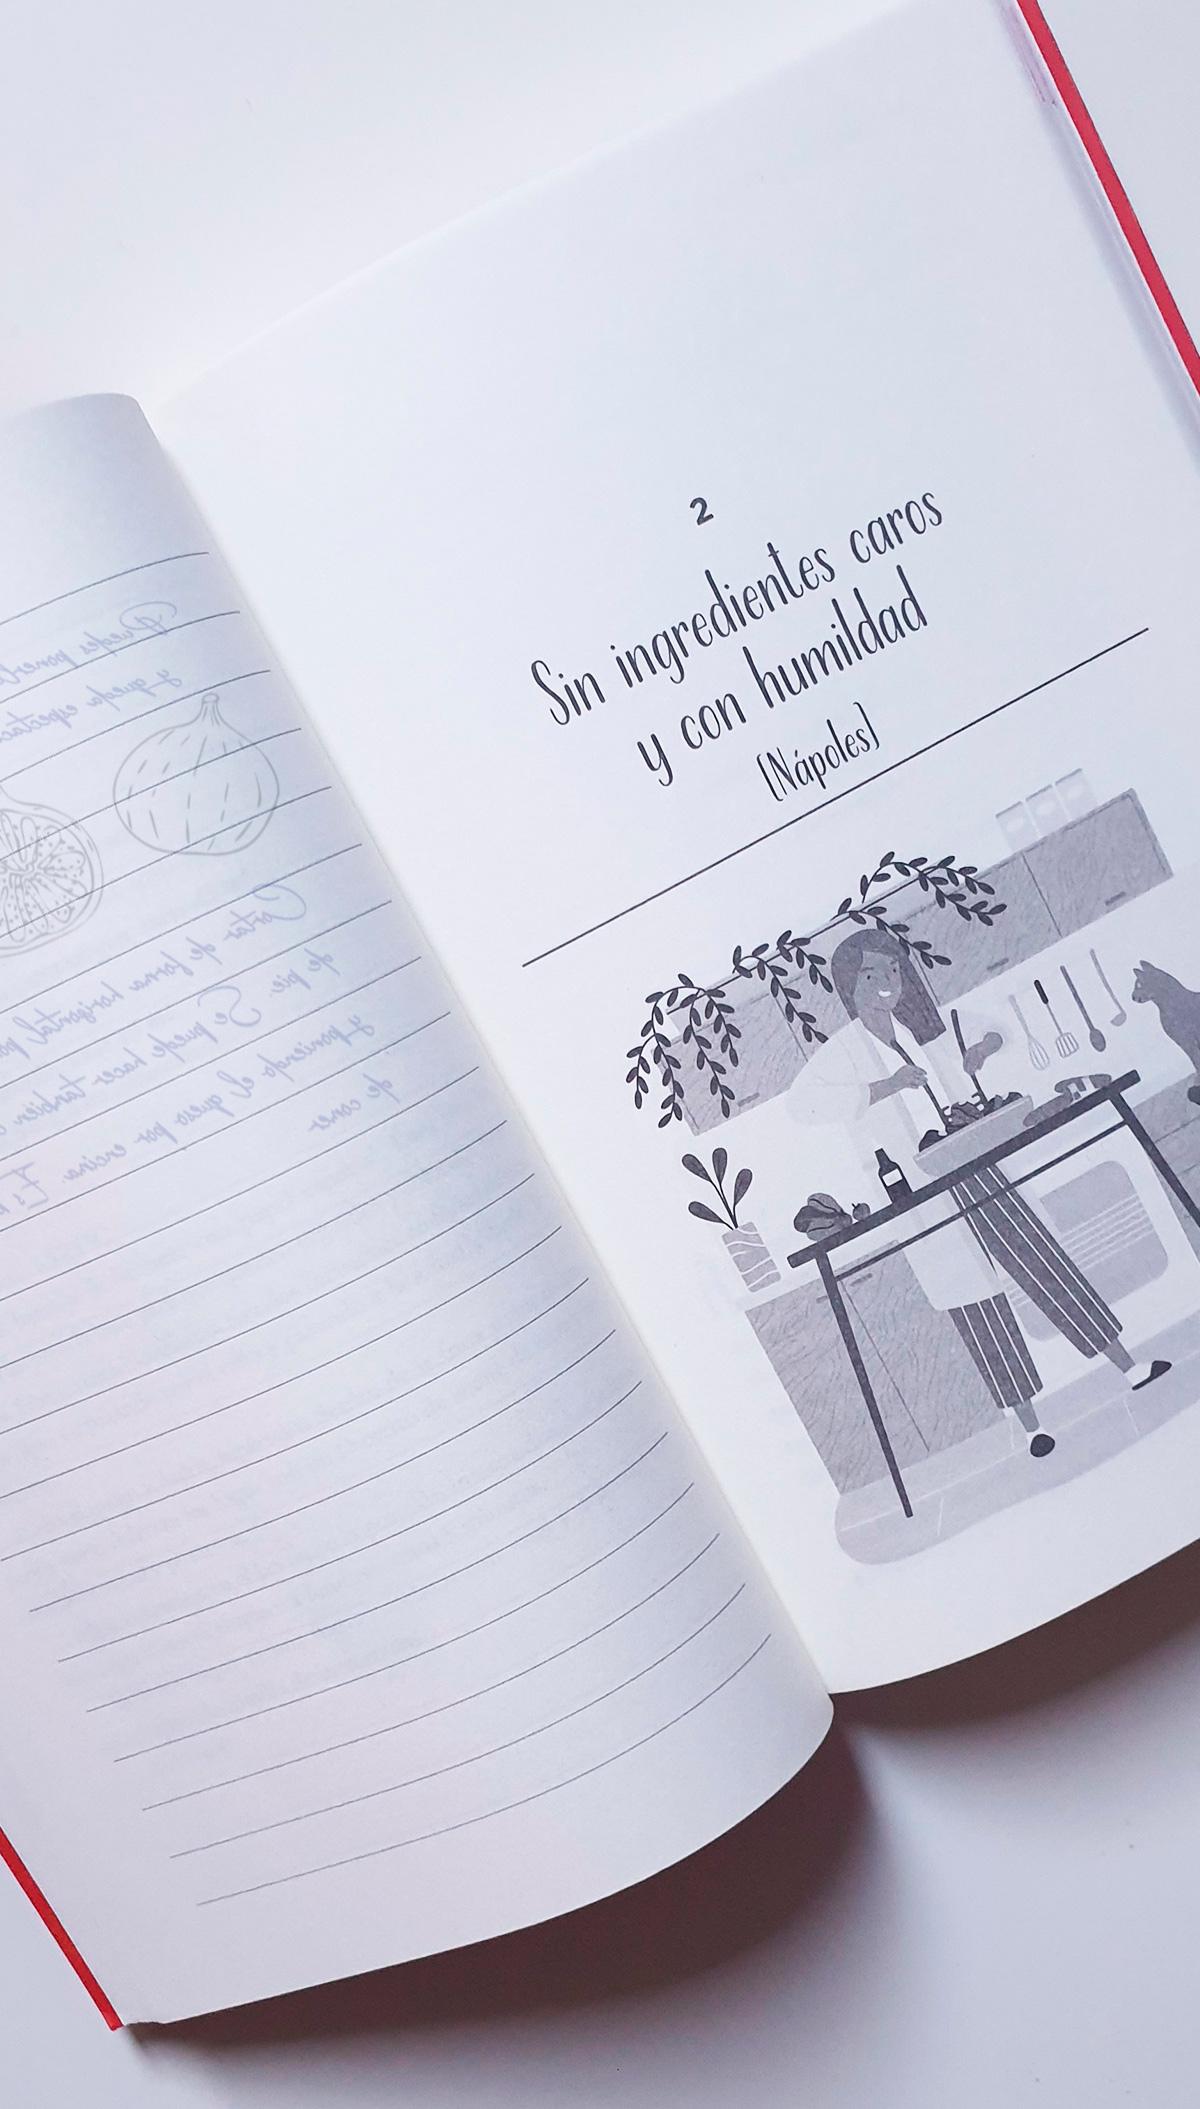 Puedes
y queda
Cortar de forma horizontal,
de pie. Se puede hacer también
y poniendo el queso por encima. Es
de comer
2
Sin ingredientes caros
y con humildad
[Nápoles]